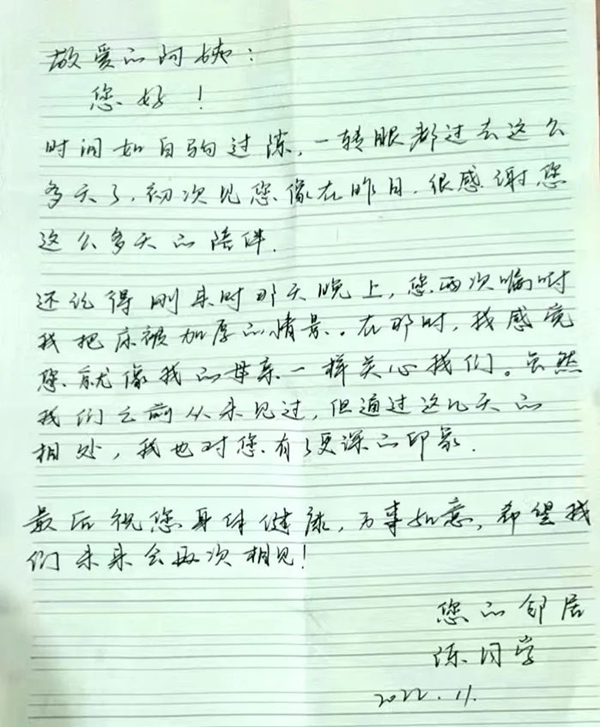 敬爱的阿姨：
您好！
时间如白驹过隙，一转眼都过去这么
多天了，初次见您像在昨日，很感谢您
这么多天的陪伴．
还记得刚来时那天晚上，您两次嘱咐
我把床被加厚的情景。在那时，我感觉
您就像我的母亲一样关心我们。虽然
我们之前从未见过，但通过这几天的
相处，我也对您有了更深的印象．
最后祝您身体健康，万事如意，希望我
们未来会再次相见！
您的邻居
陈同学
2022.11.